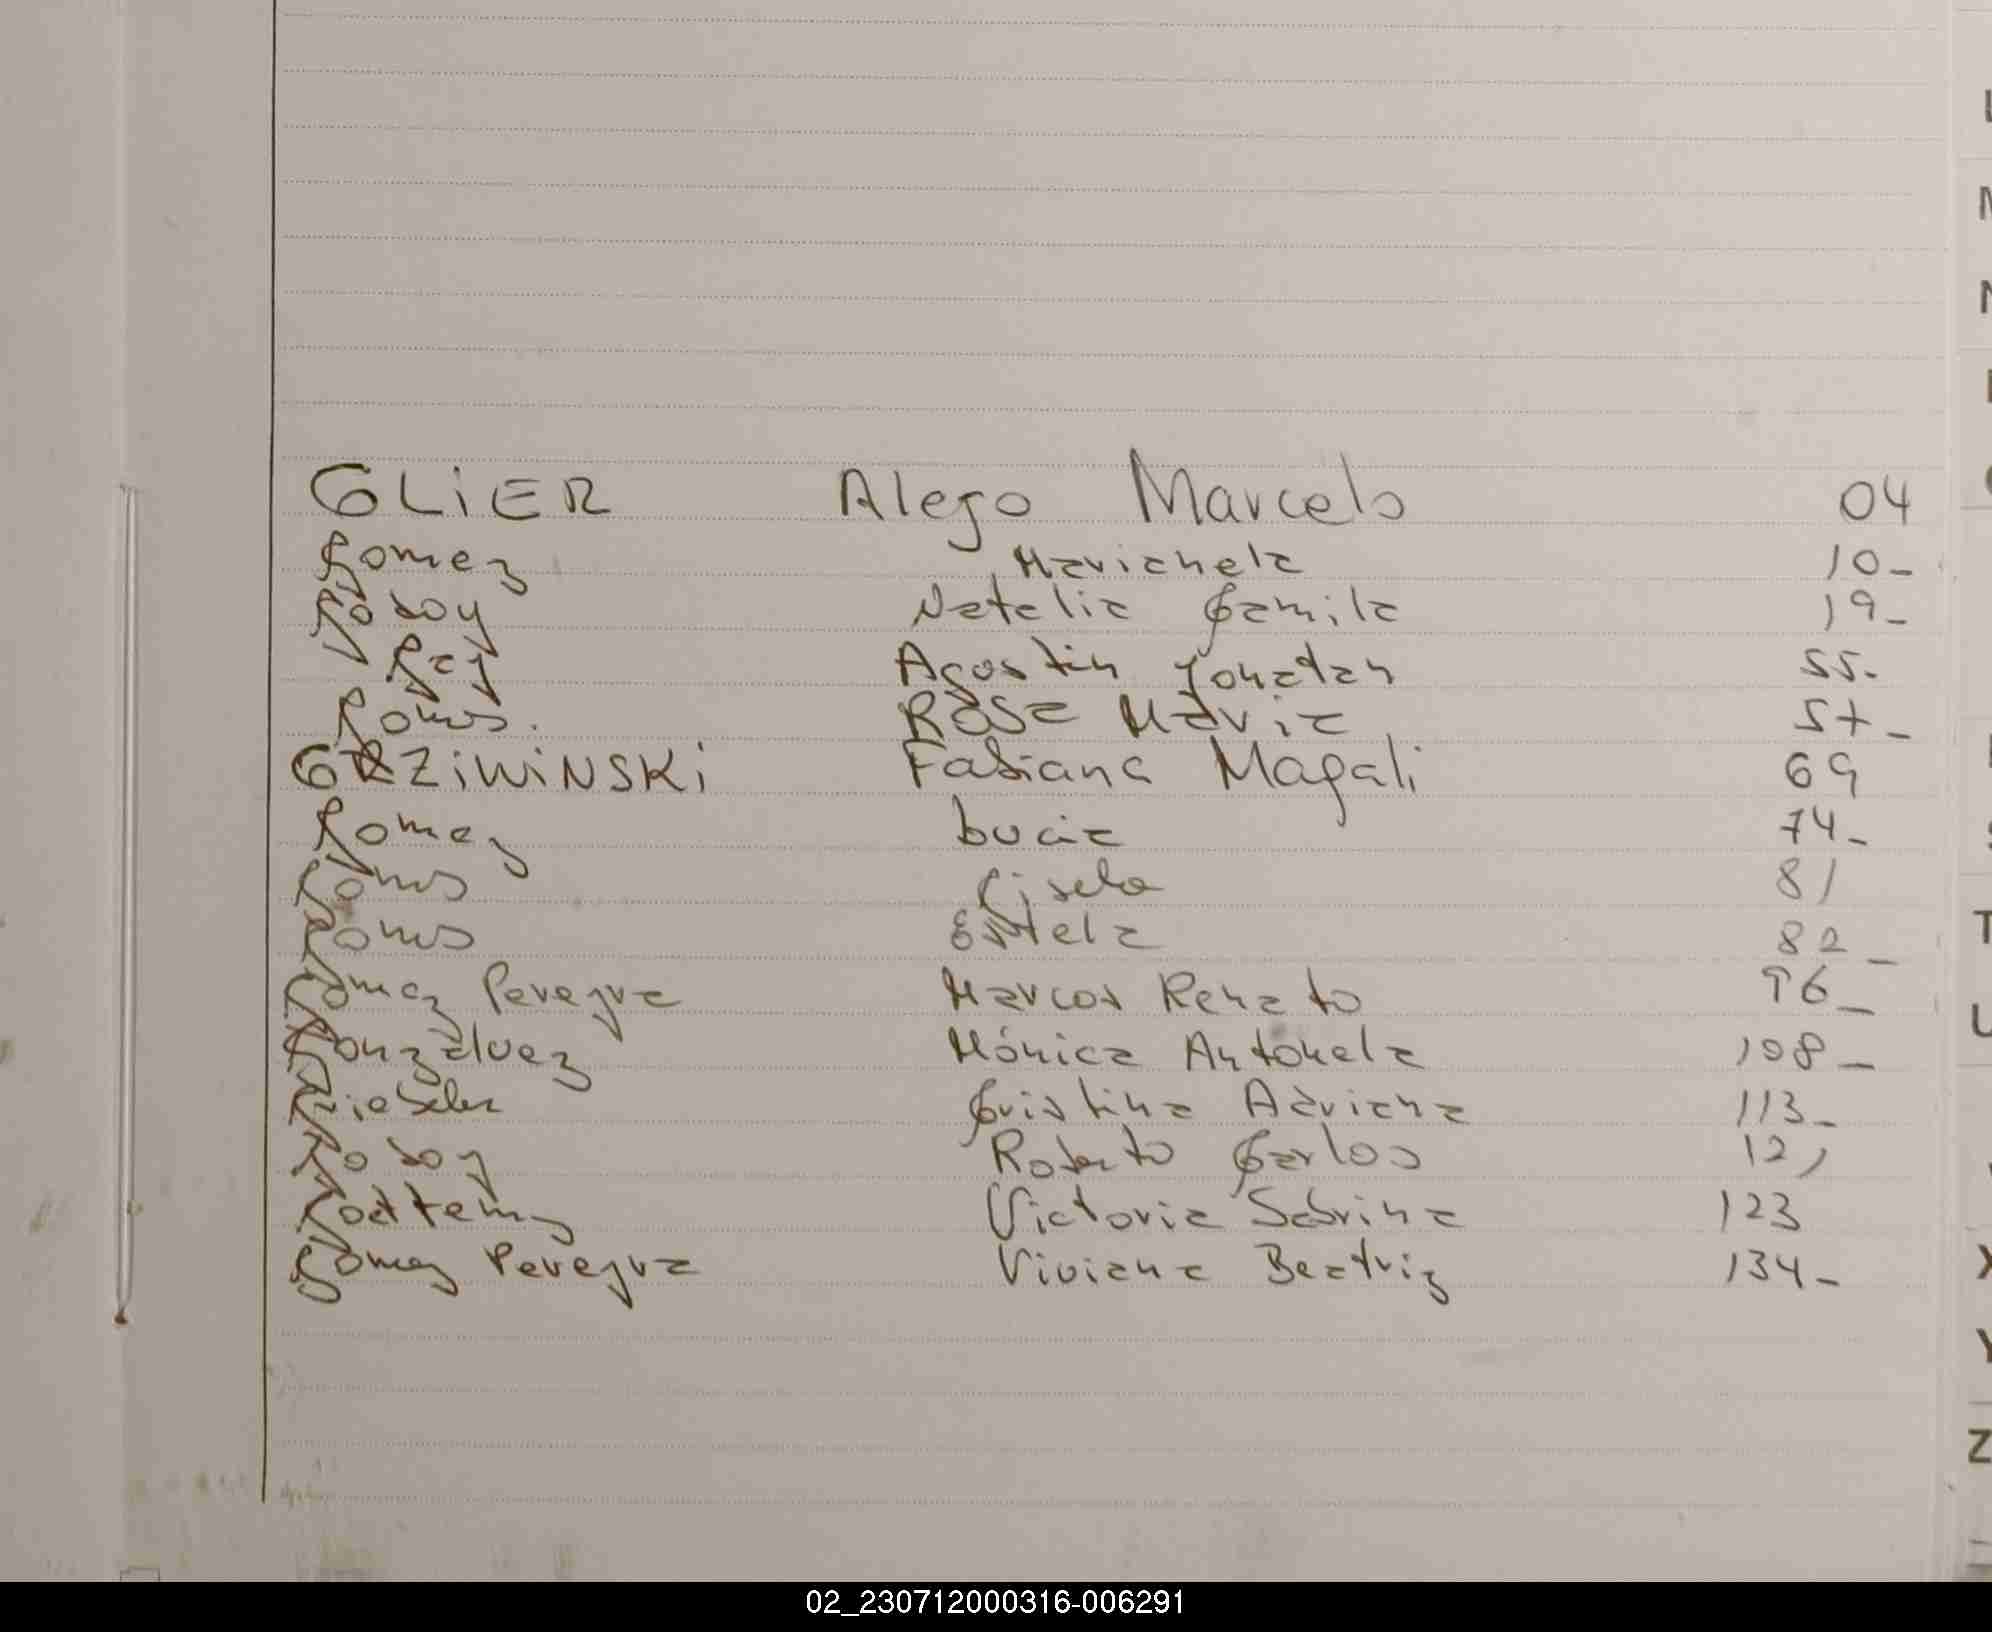 GLIER Alejo Marcelo 04
Gomez Marianela 10-
Godoy Natalia Camila 19-
Gay Agostin Jonatan 55-
Goms. Rosa Maria 57-
GRZIWINSKI Fabiana Magali 69
Gomez Lucia 74-
Goms Gisela 81
Goms Estela 82-
Gomez Pereyra Marcos Renato 96-
Gonzalvez Mónica Antonela 108-
Griebeler Cristina Adriana 113-
Godoy Roberto Carlos 121
Victoria Sabrina 123
Gomez Pereyra Viviana Beatriz 134-
T
U
X
Y
Z
02_230712000316-006291